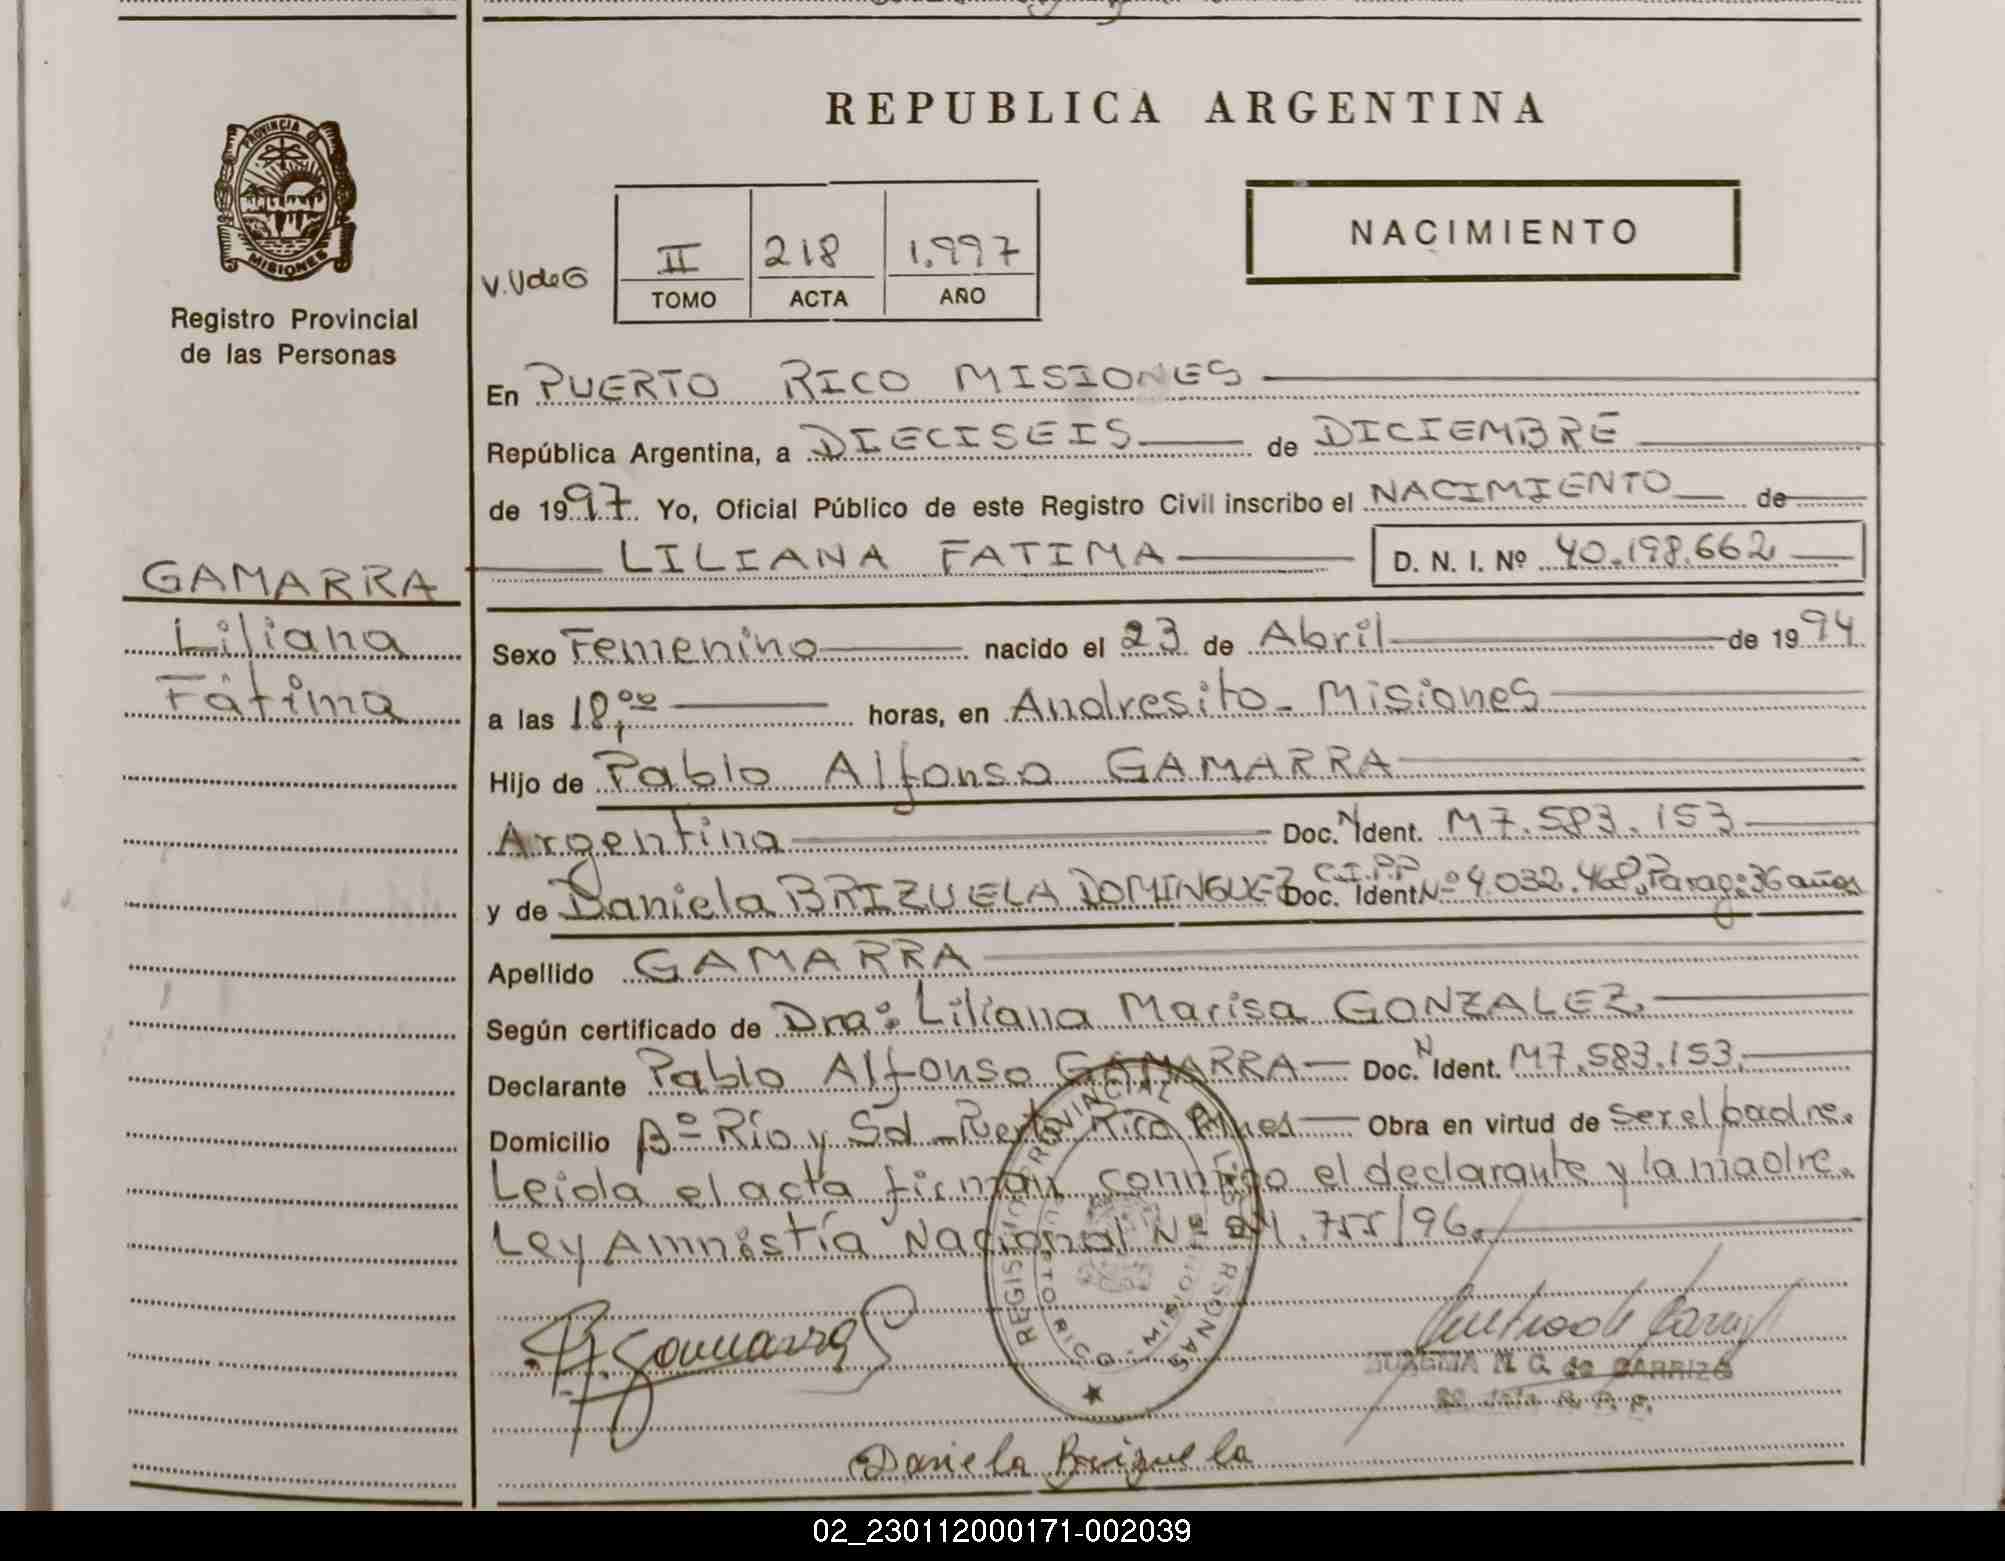 REPUBLICA ARGENTINA
PROVINCIA D
MISIONES
Registro Provincial
de las Personas
V.VdeG
II 218 1.997
TOMO ACTA AÑO
NACIMIENTO
En PUERTO RICO MISIONES
República Argentina, a DIECISEIS de DICIEMBRE
de 1997. Yo, Oficial Público de este Registro Civil inscribo el NACIMIENTO de
LILIANA FATIMA D. N. I. Nº 40.198.662
GAMARRA
Liliana
Fátima
Sexo Femenino nacido el 23 de Abril de 1994
a las 18,00 horas, en Andresito - Misiones
Hijo de Pablo Alfonso GAMARRA
Argentina Doc. N Ident. M7.583.153
y de Daniela BRIZUELA DOMINGUEZ Doc. Ident C.I.P.P Nº 4.032.468, Parag: 36 años
Apellido GAMARRA
Según certificado de Dra: Liliana Marisa GONZALEZ.
Declarante Pablo Alfonso GAMARRA Doc. N Ident. M7.583.153.
Domicilio Bº Río y Sd - Puerto Rico Mnes Obra en virtud de ser el padre.
Leida el acta firman conmigo el declarante y la madre.
Ley Amnistía Nacional Nº 24.755/96.
REGISTRO PROVINCIAL DE LAS PERSONAS
PUERTO RICO - MISIONES
P.A. Gamarra
M. G. de CARRIZO
Daniela Brizuela
02_230112000171-002039